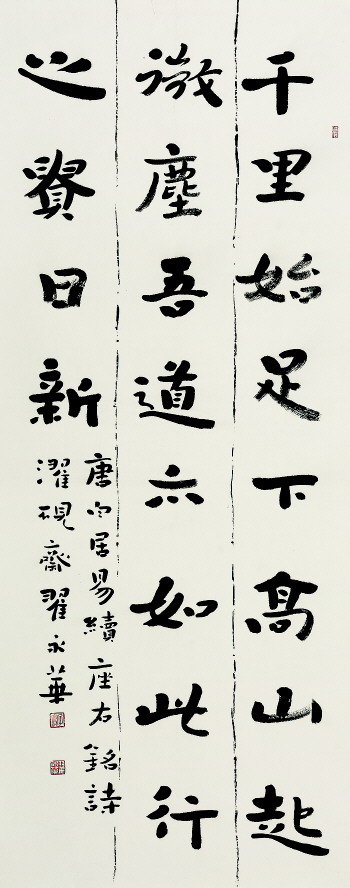 千里始足下高山起
微塵吾道亦如此行
之貴日新
唐白居易續座右銘詩
濯硯齋翟永華